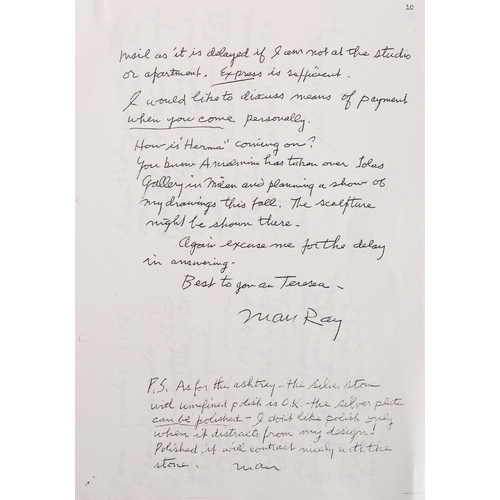 10
mail as it is delayed if I am not at the studio
or apartment. Express is sufficient.
I would like to discuss means of payment
when you come personally.
How is "Herma" coming on?
You know Anselmino has taken over Iolas
Gallery in Milan and planning a show of
my drawings this fall. The sculpture
might be shown there -
Again excuse me for the delay
in answering.
Best to you an Teresea -
Man Ray
P.S. As for the ashtray - the silver stone
with unrefined polish is O.K. - the silver plate
can be polished - I don't like polish only
when it distracts from my design!
Polished it will contrast nicely with the
stone. Man